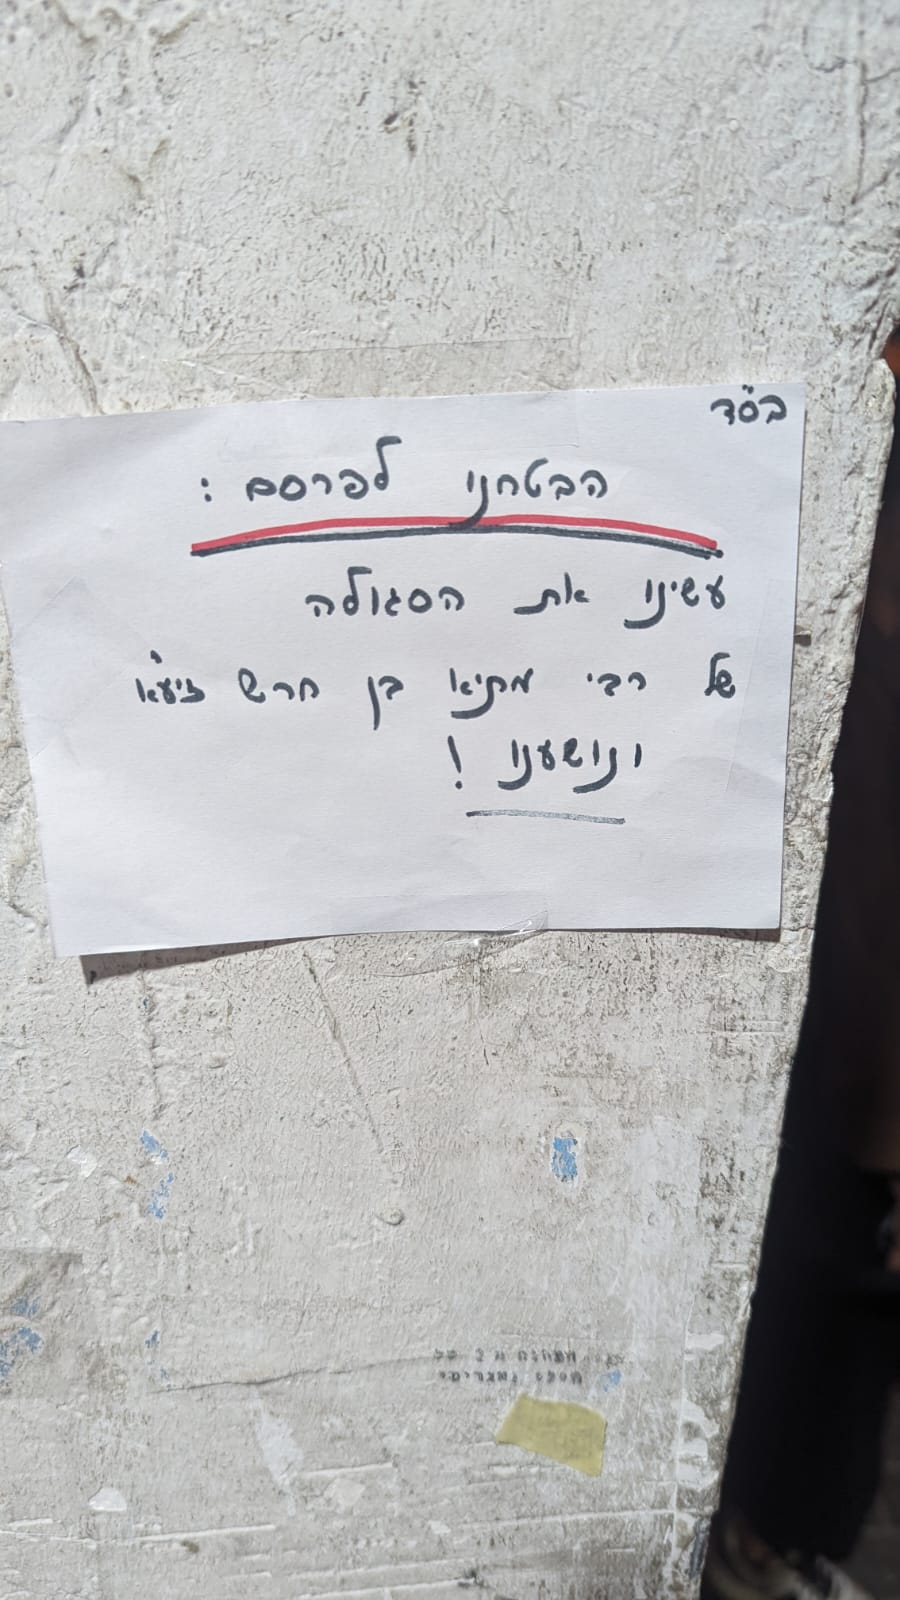 בס"ד
הבטחנו לפרסם :
עשינו את הסגולה
של רבי מתיא בן חרש זיע"א
ונושענו !